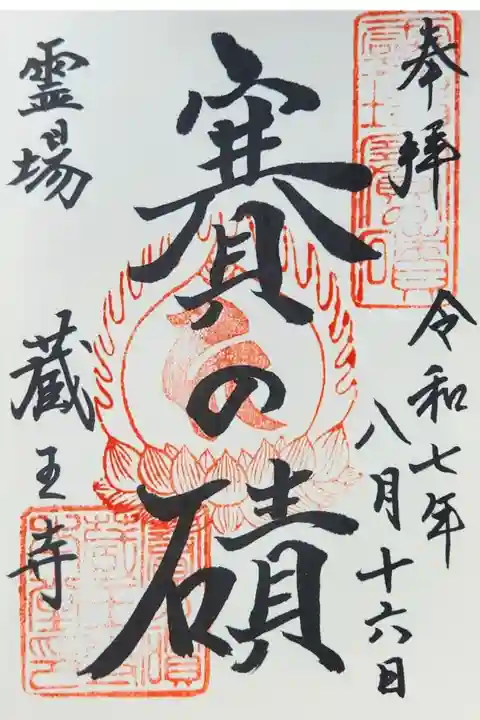 奉拝
令和七年
八月十六日
賽の磧
霊場
蔵王寺